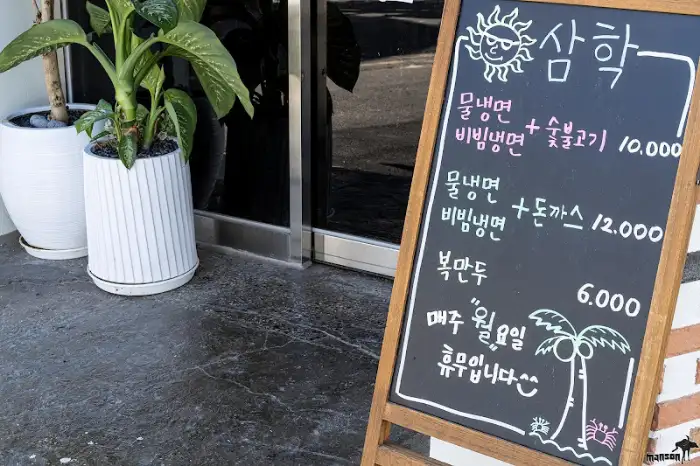 삼학
물냉면
비빔냉면 + 숯불고기 10.000
물냉면
비빔냉면 + 돈까스 12.000
복만두
6.000
매주 "월"요일
휴무입니다
manson